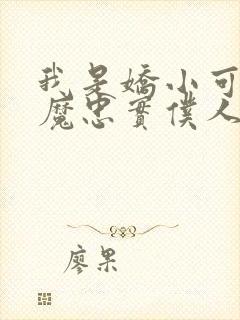 我是嬌小可
魔忠實僕人
廖果